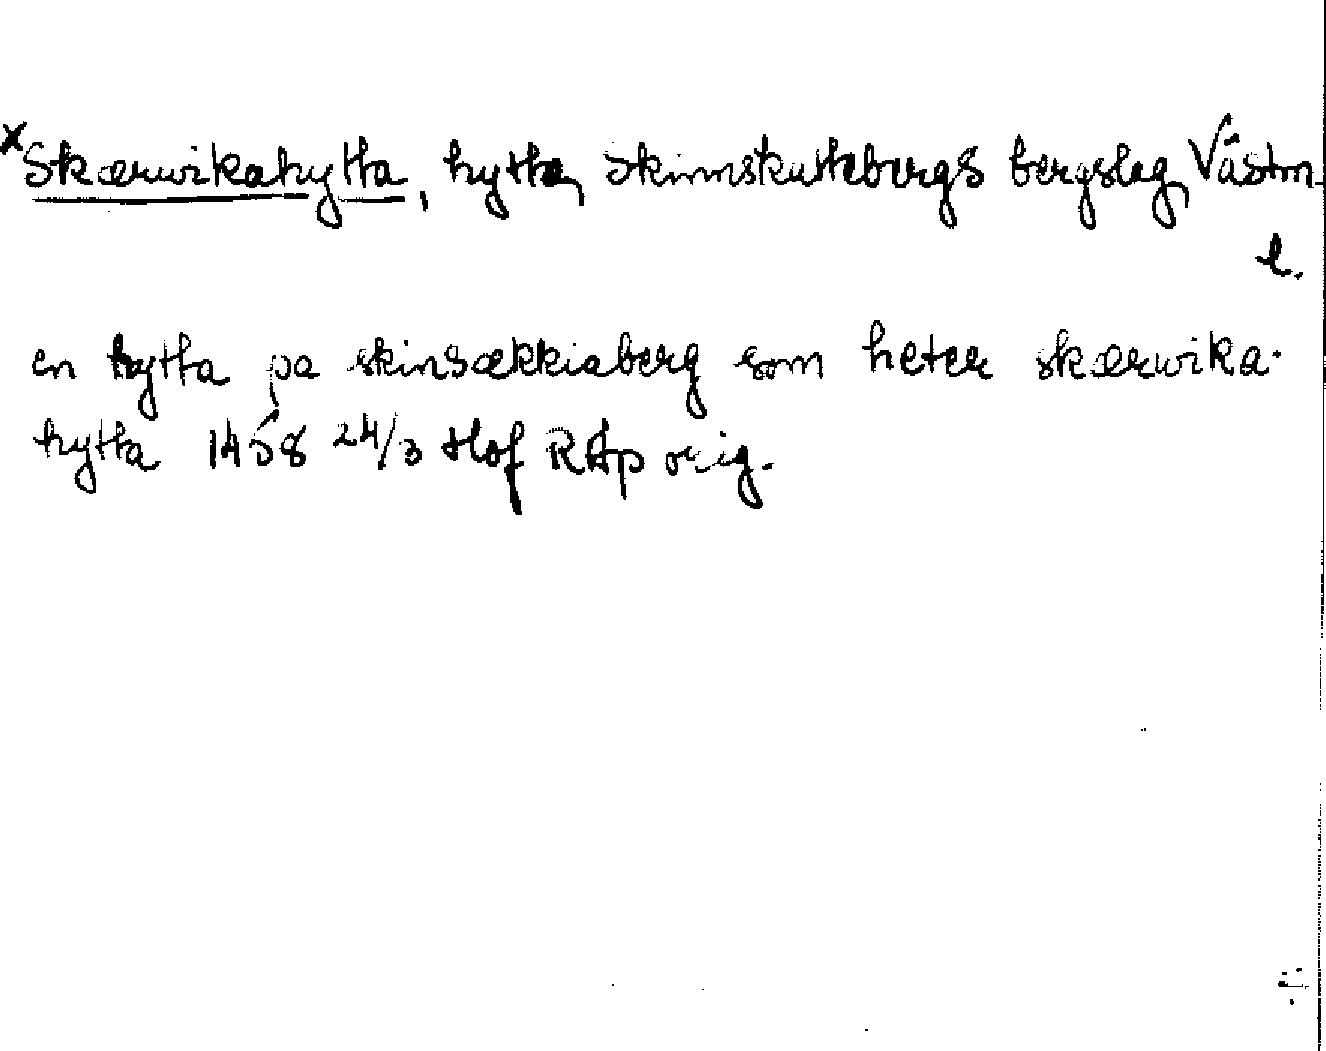 ×Skærwikahytta, hytta, Skinnskattebergs bergslag, Västm.
l.
en hytta pa skinsækkiaberg som heter skærwika-
hytta 1458 24/3 Hof RAp orig.